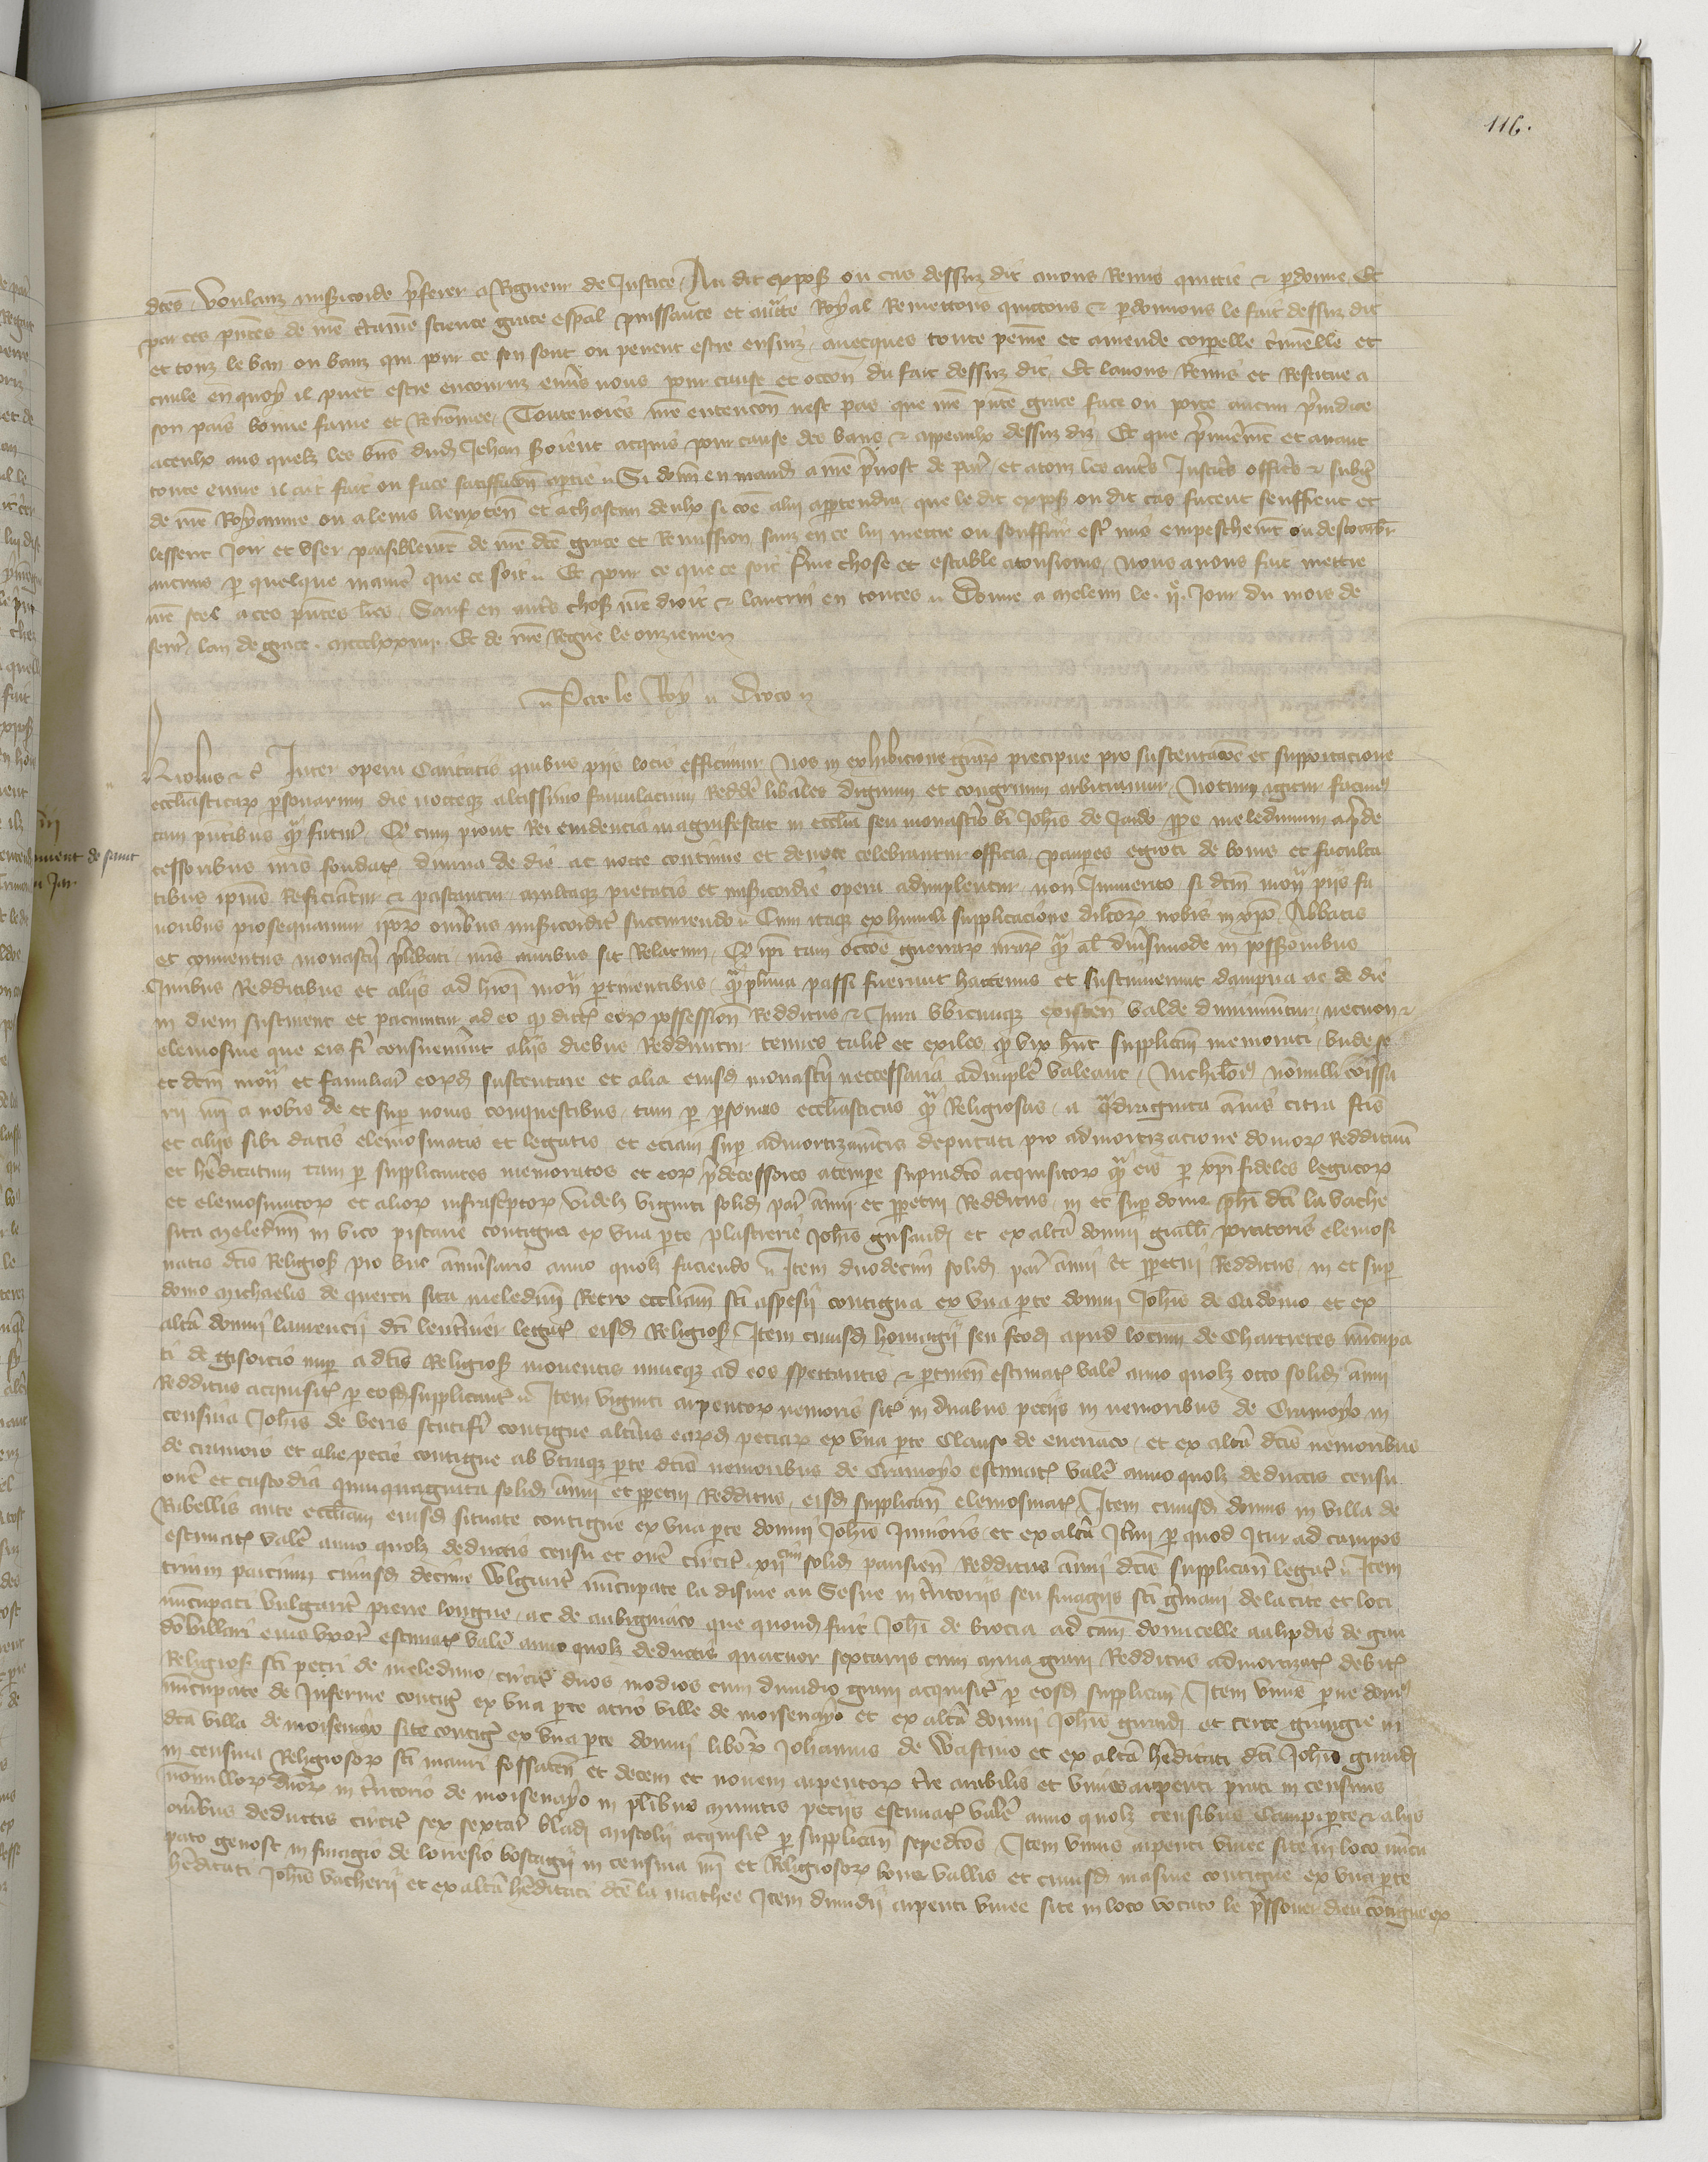 116.
dces. Voulanz misericorde preferer a Rigueur de Justice Au dit exposant ou cas dessuz dit avons Remis quictie & pardonne Et
par ces presentes de nostre certaine science grace especial puissance et auctorite Royal Remettons quictons & pardonnons le fait dessuz dit
et touz le ban ou banz qui pour ce sen sont ou peuent estre ensuiz avecques toute peine et amende corporelle criminelle et
civile en quoy il puet estre encouruz envers nous pour cause et occasion du fait dessuz dit Et lavons Remis et Restitue a
son pais bonne fame et Renommee Toutevoies nostre entencion nest pas que nostre presente grace face ou porte aucun preiudice
a ceulx aus quelz les biens dudit Jehan soient acquis pour cause des bans & appeaulx dessuz diz Et que premierement et avant
toute euvre il ait fait ou face satisfacion a partie Si donnons en mandement a nostre prevost de paris et a touz les autres Justiciers officiers & subgez
de nostre Royaume ou a leurs lieuxtenans et a chascun deulx si comme a lui appartendra que le dit exposant ou dit cas facent seuffrent et
lessent Joir et User paisiblement de nostre dicte grace et Remission sanz en ce lui mettre ou souffrir estre mis empeschement ou destourbier
aucuns par quelque maniere que ce soit Et pour ce que ce soit ferme chose et estable a tousiours Nous avons fait mettre
nostre seel a ces presentes lettres Sauf en autres choses nostre droit & lautrui en toutes Donne a Meleun le Jour du mois de
lan de grace mccclxxiiii Et de nostre Regne le onziemen
Par le Roy Droco
Karolus &c Inter opera Caritatis quibus piis locis efficimur Nos in exhibicione graciarum precipue pro sustentacione et supportacione
ecclesiasticarum personarum die nocteque altissimo famulacium Reddere liberales dignum et congruum arbitramur Notum igitur facimus
tam presentibus quam futuris Quod cum prout Rei evidencia magnifestat in ecclesia seu monasterio beati Johannis de Jardo prope meledunum a prede
cessoribus nostris fondato divina de die ac nocte continue et devote celebrantur officia pauperes egroti de bonis et faculta
tibus ipsius Reficiantur & pascantur multaque pietatis et misericordie opera adimplentur non Immerito si dictum monasterium piis fa
voribus prosequamur ipsorum oneribus misericorditer succurrendo Cum itaque ex humili supplicacione dilectorum nobis in christo Abbatis
et conventus monasterii prelibati nostris auribus sit Relatum Quod ipsi tam occasione guerrarum nostrarum quam alias diversimode in possessionibus
Juribus Redditibus et aliis ad huiusmodi monasterium pertinentibus quamplurima passi fuerunt hactenus et sustinuerunt dampna ac de die
in diem sustinent et paciuntur adeo quod dicte eorum possessiones Redditus & Jura ubicunque existentes valde diminuuntur necnon &
elemosine que eis fieri consueverunt aliis diebus Redduntur tenues taliter et exiles quod vix habent supplicantes memorati unde se
et dictum monasterium et familiares eorumdem sustentare et alia eiusdem monasterii neccessaria adimplere valeant Nichilominus nonnulli commissa
rii nostri a nobis de et super novis conquestibus tam per personas ecclesiasticas quam Religiosas a quadraginta annis citra factis
et aliis sibi datis elemosinatis et legatis et eciam super admortizamentis deputati pro admortizacione domorum Reddituum
et hereditatum tam per supplicantes memoratos et eorum predecessores a tempore supradicto acquisitorum quam eis per christi fideles legatorum
et elemosinatorum et aliorum infrascriptorum Videlicet viginti solidorum parisiensium annui et perpetui Redditus in et super domo dicti la Vache
sita Meleduni in vico piscarie contigua ex una parte plastrerie Johannis grisardi et ex altera domui guillelmi elemosi
natis dictis Religiosis pro uno anniversario anno quolibet faciendo Item duodecim solidorum parisiensium annui et perpetui Redditus in et super
domo Michaelis de quercu sita meleduni Retro ecclesiam sancti aspesii contigua ex una parte domui Johannis de Cadomo et ex
altera domui laurencii dicti legatorum eisdem Religiosis Item cuiusdam homagii seu feodi apud locum de Chartretes nuncupa
ti de gisorcio nuper a dictis Religiosis moventis nuncque ad eos spectantis & pertinentis estimati valere anno quolibet octo solidos annui
Redditus acquisiti per eosdem supplicantes Item viginti arpentorum nemoris sitorum in duabus peciis in nemoribus de Cramoyo in
censiva Johannis de Veris scutiferi contigue alterius earumdem peciarum ex una parte Clauso de eneriaco et ex altera dictis nemoribus
de cramoio et alie pecie contigue ab utraque parte dictis nemoribus de Cramoyo estimatorum valere anno quolibet deductis censu
onere et custodia quinquaginta solidos annui et perpetui Redditus eisdem supplicantibus elemosinatorum Item cuiusdam domus in villa de
Ribellis ante ecclesiam eiusdem situate contigue ex una parte domui Johannis Junioris et ex altera Itineri per quod Itur ad campos
estimate valere anno quolibet deductis censu et onere circiter xii solidos parisienses Redditus annui dictis supplicantibus legate Item
trium parcium cuiusdam decime vulgariter nuncupate la disme au Sesne in territoriis seu finagiis sancti germani de la cite et loci
nuncupati vulgariter pierre longue ac de aubigniaco que quondam fuit Johannis de brocia ad causam domicelle aalipdis de gau
do Villari eius uxoris estimate valere anno quolibet deductis quatuor sextariis cum mina grani Redditus admortizati debitis
Religiosis sancti petri de meleduno circiter duos modios cum dimidio grani acquisite per eosdem supplicantes Item unius parve domus
nuncupate de Inferme contigue ex una parte atrio ville de moisenayo et ex altera domui Johannis girardi et certe grangie in
dicta villa de moisenayo site contigue ex una parte domui liberorum Johannis de Wastino et ex altera hereditati dicti Johannis girardi
in censiva Religiosorum sancti mauri fossatensis et decem et novem arpentorum terre arabilis et unius arpenti prati in censivis
nonnullorum dominorum in territorio de moisenayo in pluribus minutis peciis estimatorum valere anno quolibet censibus campiparte & aliis
oneribus deductis circiter sex sextarios bladi mistolii acquisitorum per supplicantes sepedictos Item unius arpenti vinee site in loco nuncu
pato genost in finagio de lorresio boscagii in censiva nostri et Religiosorum bone vallis et cuiusdam masure contigue ex una parte
hereditati Johannis Vacherii et ex altera hereditati dicte la mathee Item dimidii arpenti vinee site in loco vocato le contigue ex